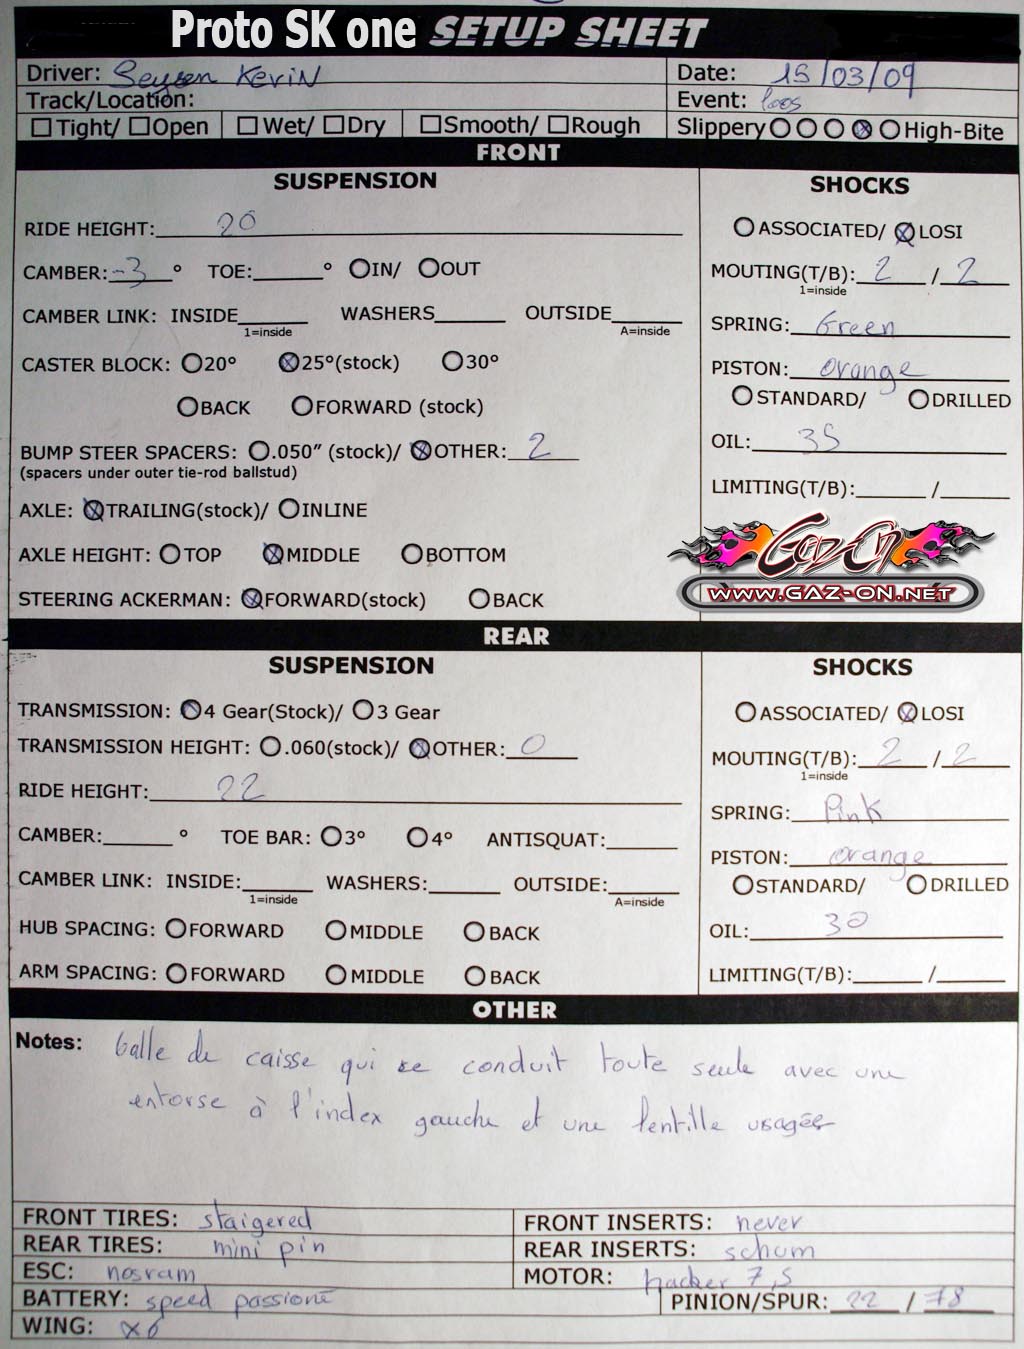 Proto SK one SETUP SHEET
Driver: Seysen KeviN Date: 15/03/09
Track/Location: Event: loos
Tight/ Open Wet/ Dry Smooth/ Rough Slippery High-Bite
FRONT
SUSPENSION
RIDE HEIGHT: 20
CAMBER: -3 ° TOE: ° IN/ OUT
CAMBER LINK: INSIDE WASHERS OUTSIDE
1=inside A=inside
CASTER BLOCK: 20° 25°(stock) 30°
BACK FORWARD (stock)
BUMP STEER SPACERS: .050" (stock)/ OTHER: 2
(spacers under outer tie-rod ballstud)
AXLE: TRAILING(stock)/ INLINE
AXLE HEIGHT: TOP MIDDLE BOTTOM
STEERING ACKERMAN: FORWARD(stock) BACK
SHOCKS
ASSOCIATED/ LOSI
MOUTING(T/B): 2 / 2
1=inside
SPRING: Green
PISTON: orange
STANDARD/ DRILLED
OIL: 35
LIMITING(T/B): /
Gaz On
WWW.GAZ-ON.NET
REAR
SUSPENSION
TRANSMISSION: 4 Gear(Stock)/ 3 Gear
TRANSMISSION HEIGHT: .060(stock)/ OTHER: 0
RIDE HEIGHT: 22
CAMBER: ° TOE BAR: 3° 4° ANTISQUAT:
CAMBER LINK: INSIDE: WASHERS: OUTSIDE:
1=inside A=inside
HUB SPACING: FORWARD MIDDLE BACK
ARM SPACING: FORWARD MIDDLE BACK
SHOCKS
ASSOCIATED/ LOSI
MOUTING(T/B): 2 / 2
1=inside
SPRING: Pink
PISTON: orange
STANDARD/ DRILLED
OIL: 30
LIMITING(T/B): /
OTHER
Notes: balle de caisse qui se conduit toute seule avec une
entorse à l'index gauche et une lentille usagée
FRONT TIRES: staigered FRONT INSERTS: never
REAR TIRES: mini pin REAR INSERTS: schum
ESC: nosram MOTOR: hacker 7,5
BATTERY: speed passion PINION/SPUR: 22 / 78
WING: x6